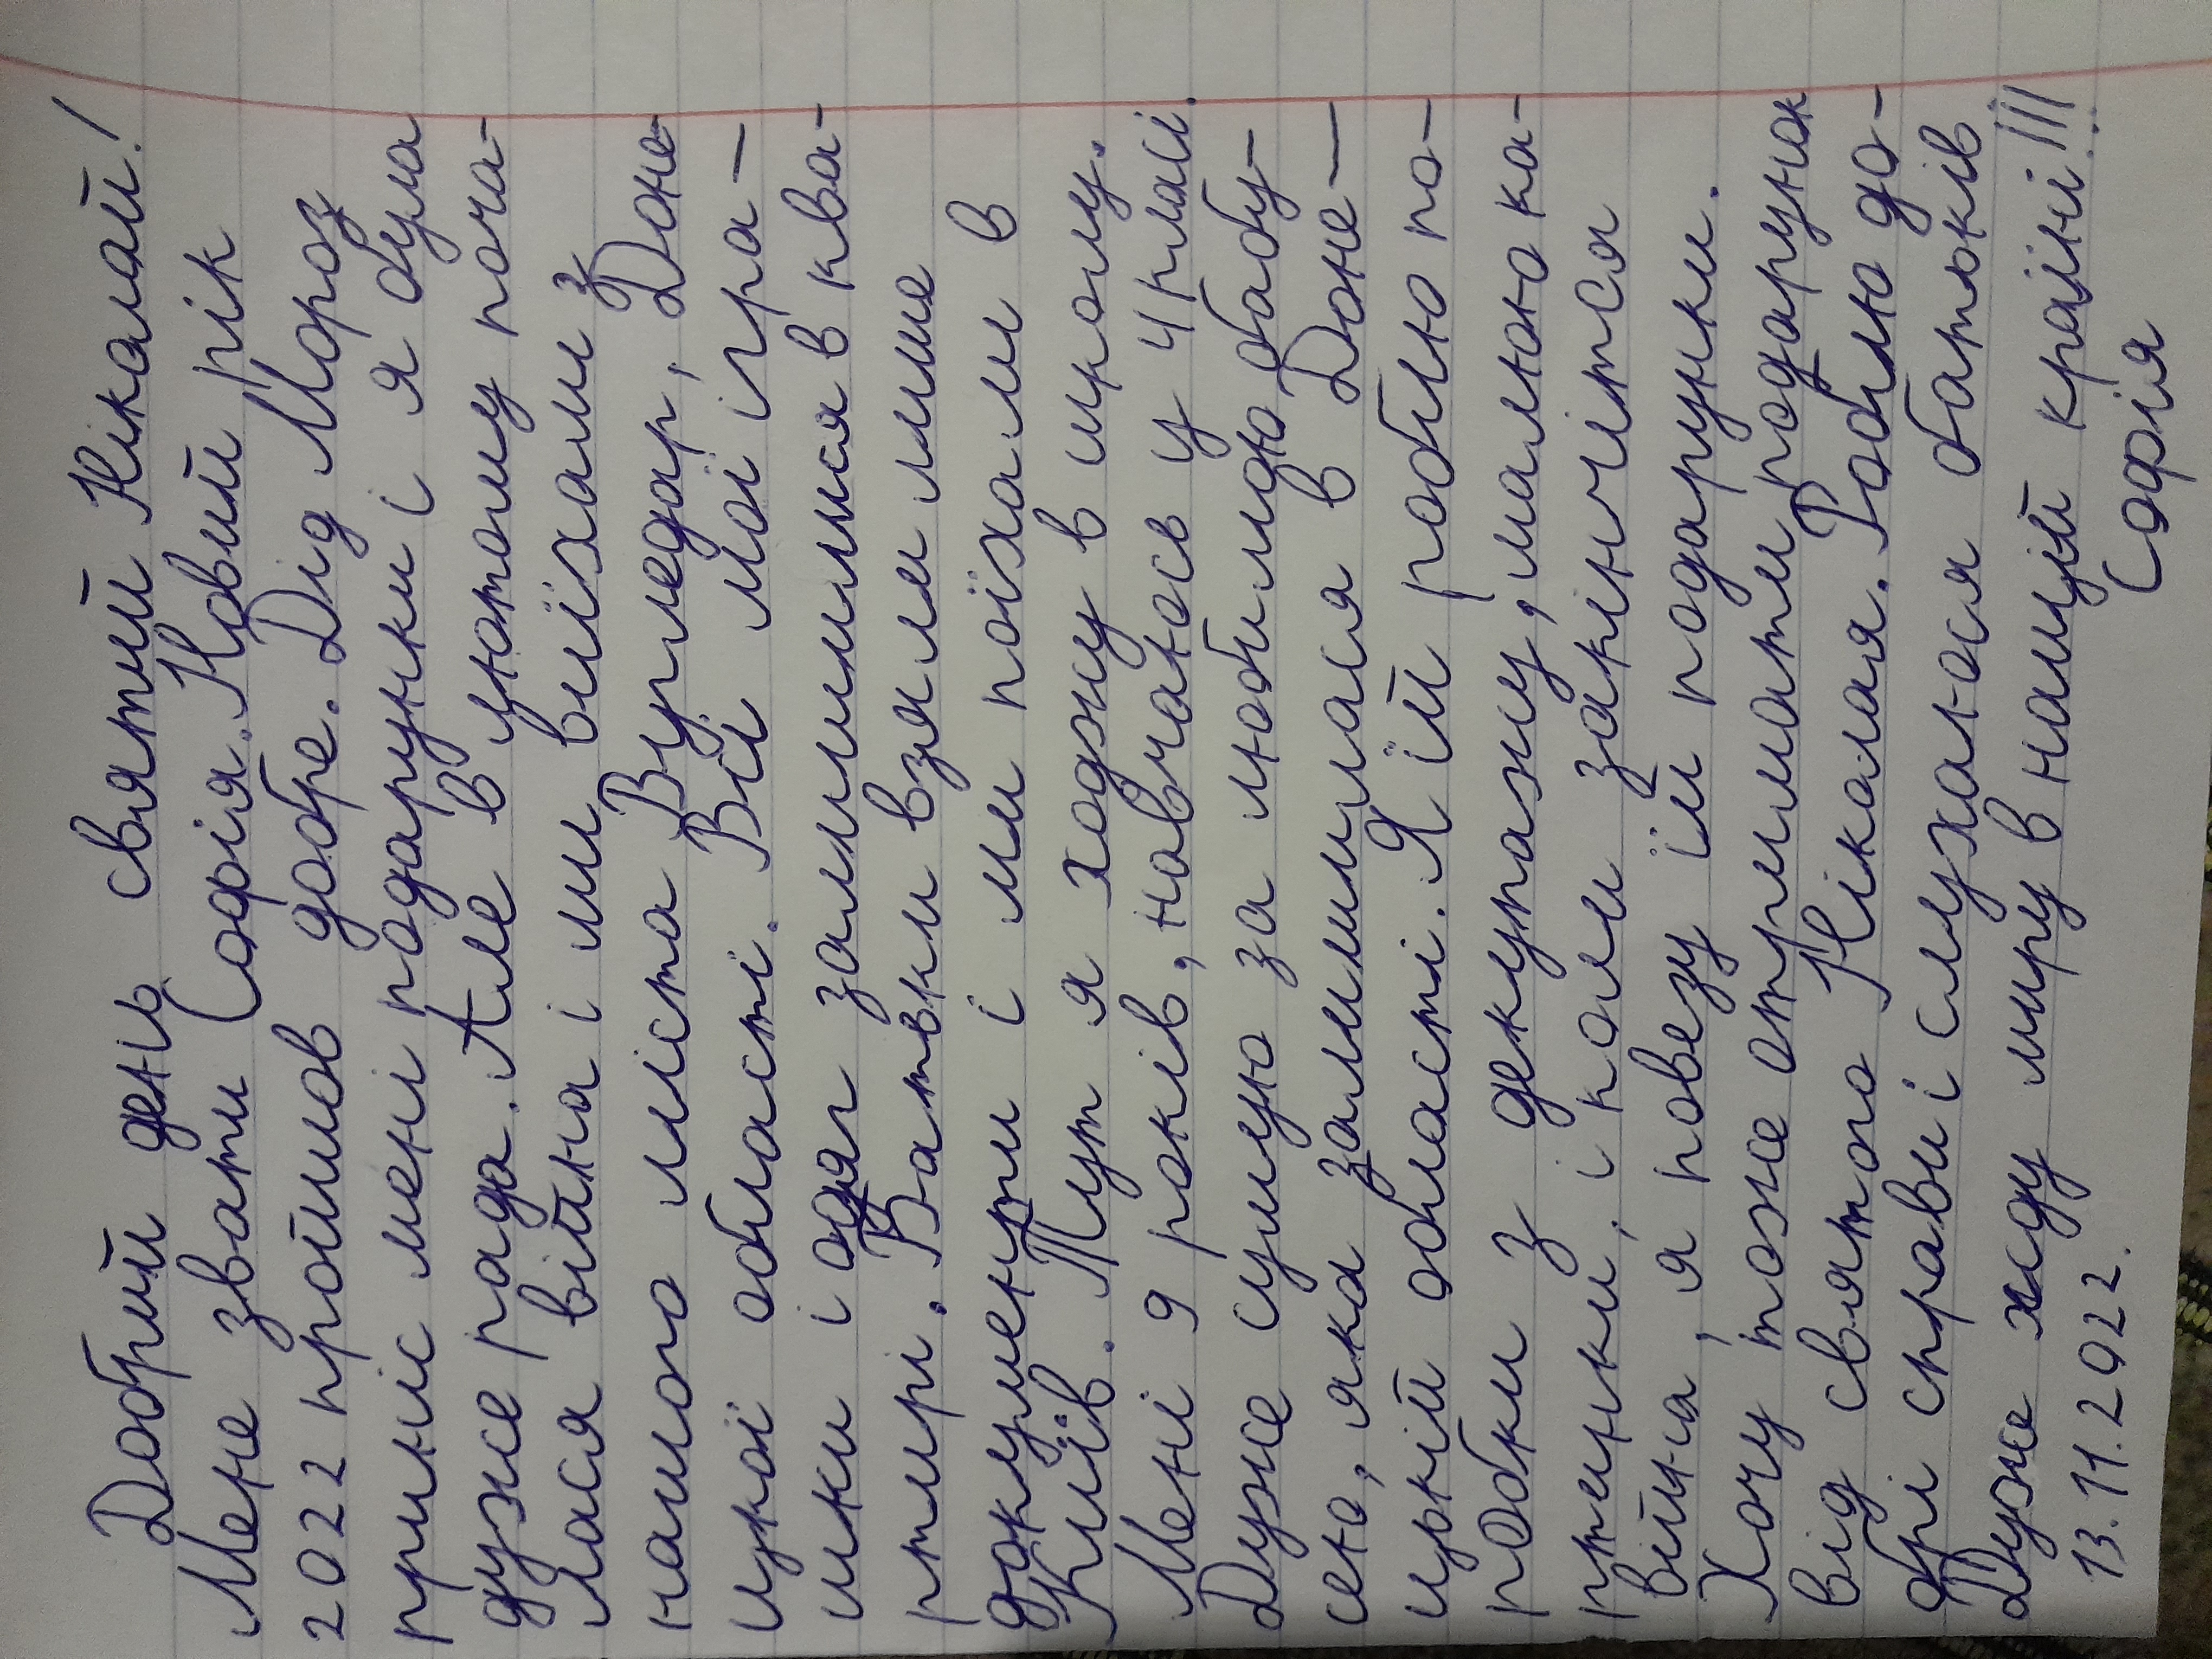 Добрий день святий Ніколай!
Мене звати Софія. Новий рік
2022 пройшов добре. Дід Мороз
приніс мені подарунки і я була
дуже рада. Але в лютому поча-
лася війна і ми виїхали з
нашого міста Вугледар, Доне-
цкої області. Всі мої ігра-
шки і одяг залишилися в ква-
ртирі. Батьки взяли лише
документи і ми поїхали в
Київ. Тут я ходжу в школу.
Мені 9 років, навчаюсь у 4 класі.
Дуже сумую за любимою бабу-
сею, яка залишилася в Доне-
цкій області. Я їй роблю ко-
робки з декупажу, малюю ка-
ртинки, і коли закінчіться
війна, я повезу їй подарунки.
Хочу тоже отримати подарунок
від святого Ніколая. Роблю до-
брі справи і слухаюся батьків
Дуже жду миру в нашій країні!!!
13.11.2022. Софія